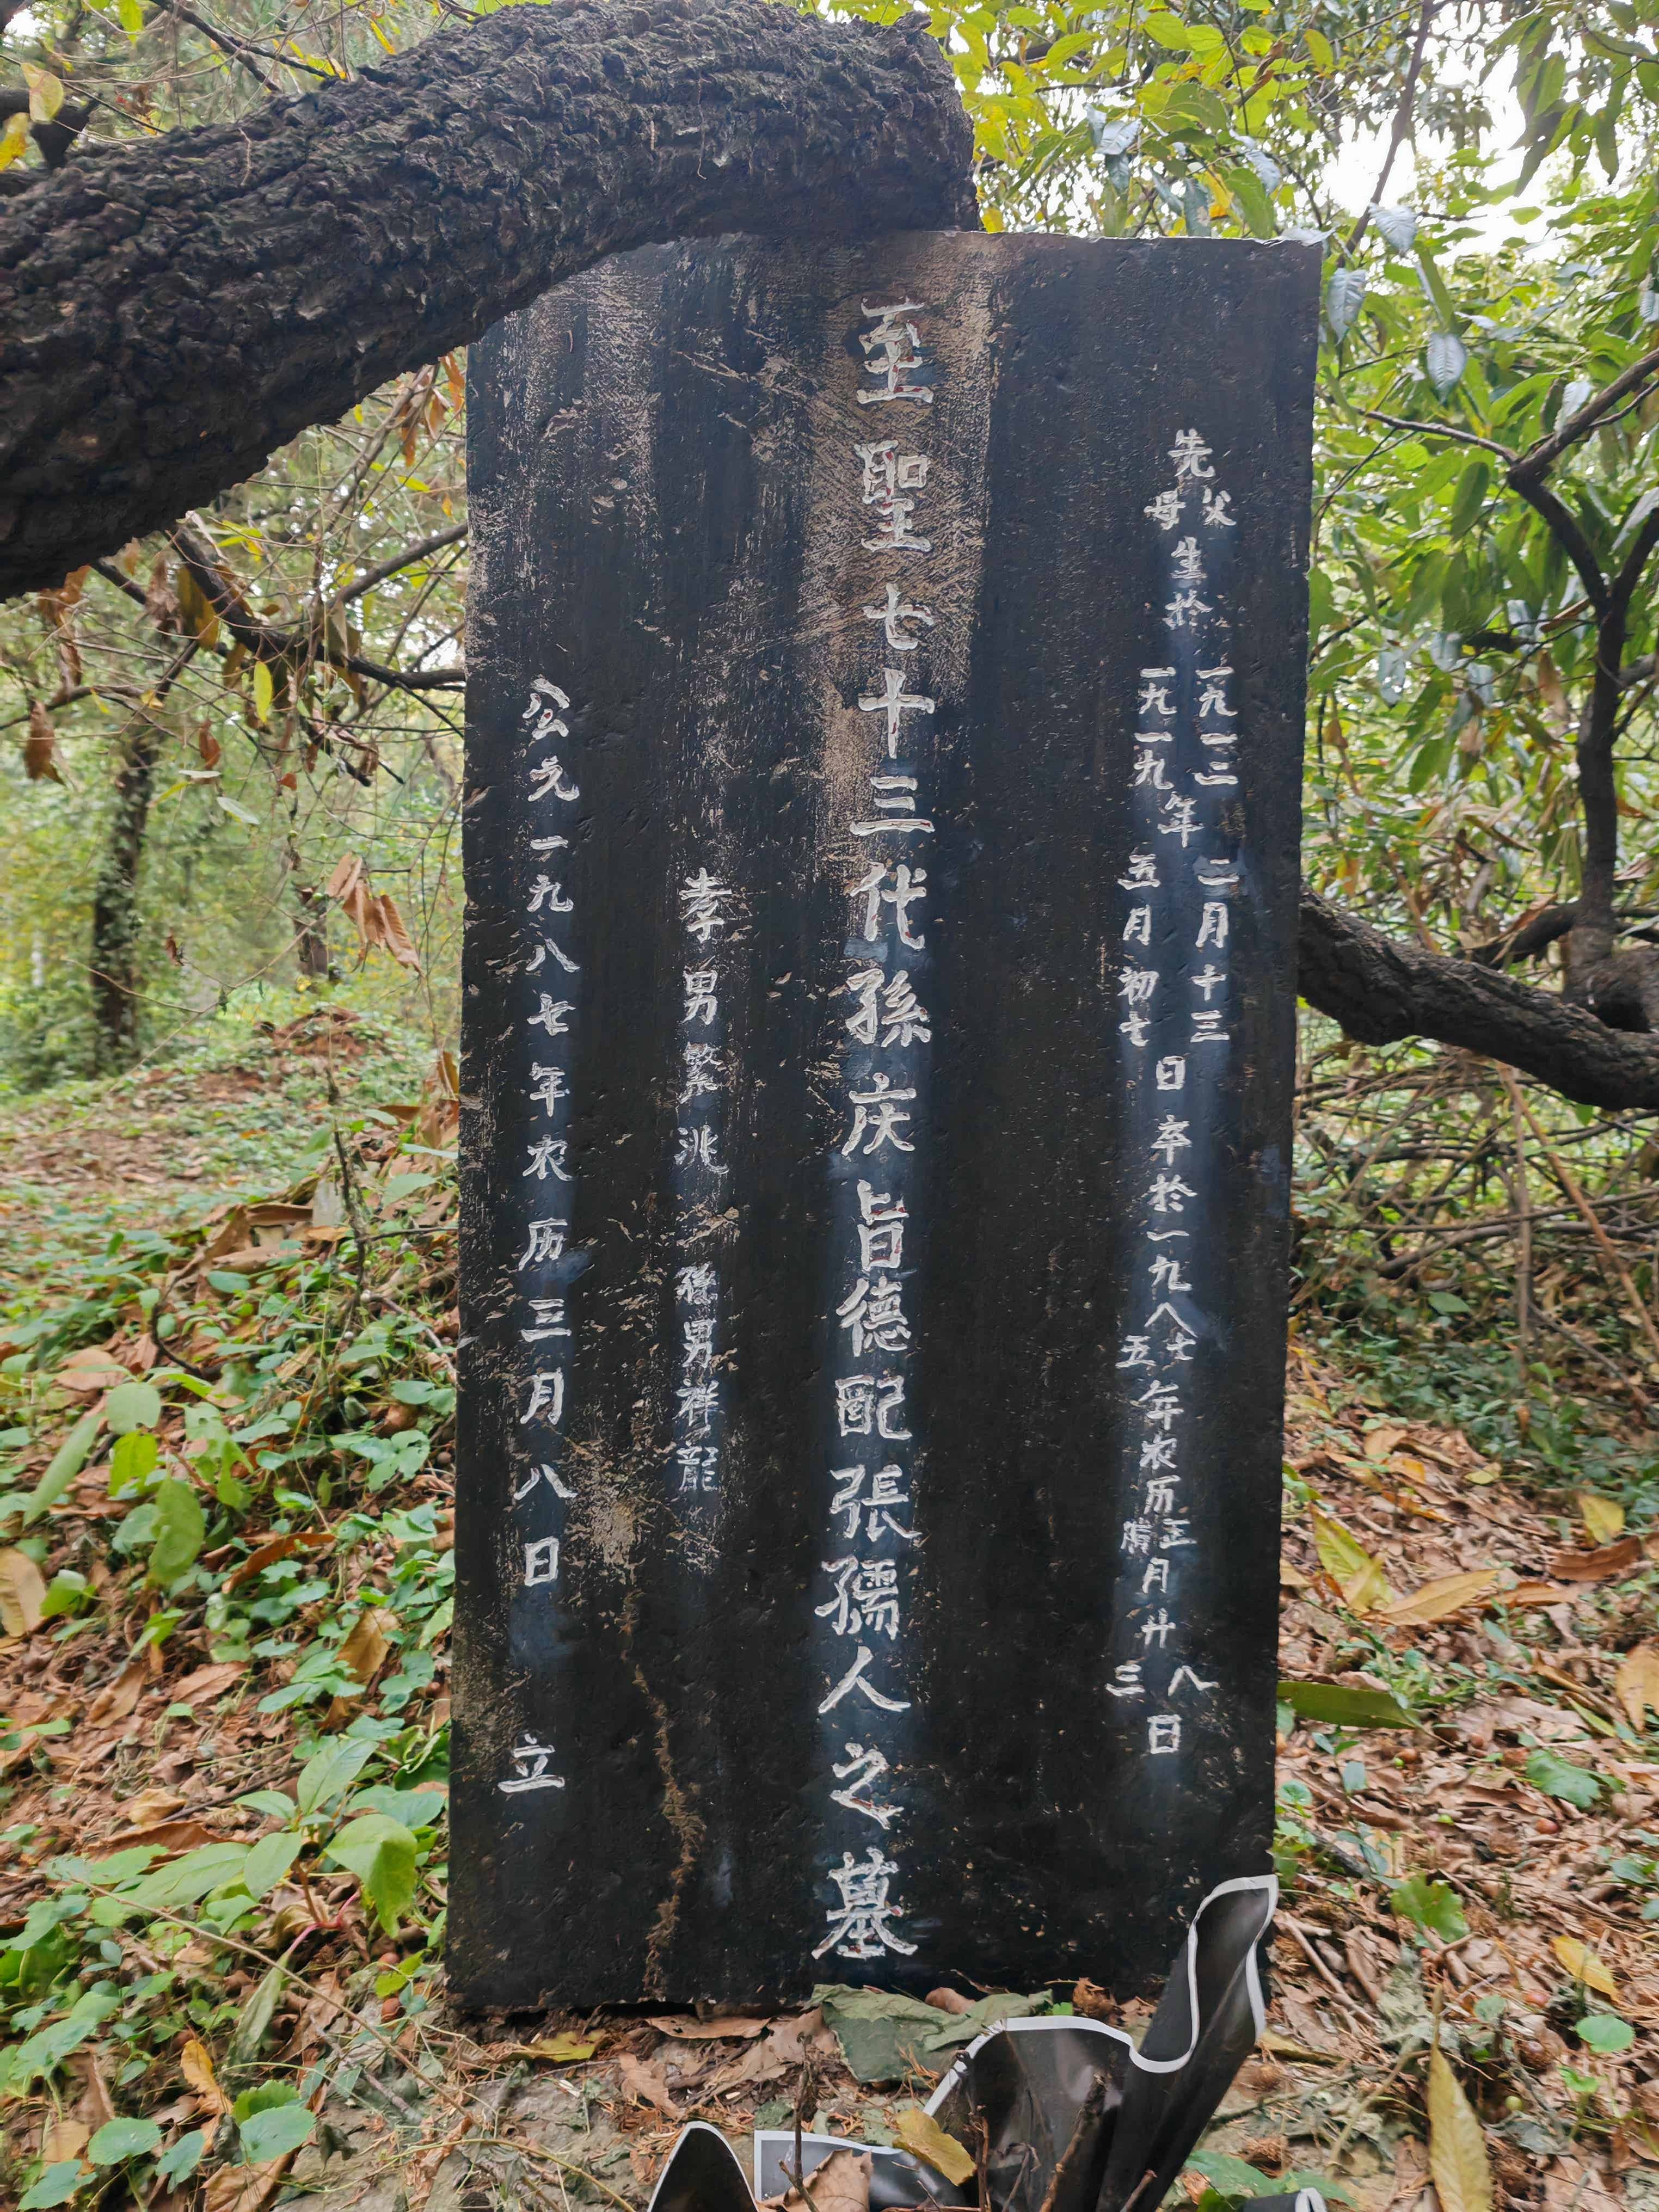 先父母生於一九一二一九一九年二月十三五月初七日卒於一九八七五年农历三腊月廿八三日
至聖七十三代孫庆旨德配張孺人之墓
孝男繁兆 孫男祥龍
公元一九八七年农历三月八日 立